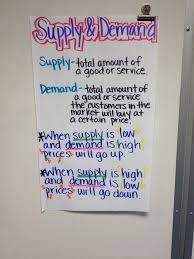 Supply & Demand
Supply-total amount of
a good or service.
Demand-total amount of
a good or service
the customers in the
market will buy at
a certain price!
*When supply is low
and demand is high
prices will go up.
*When supply is high
and demand is low
prices will go down.